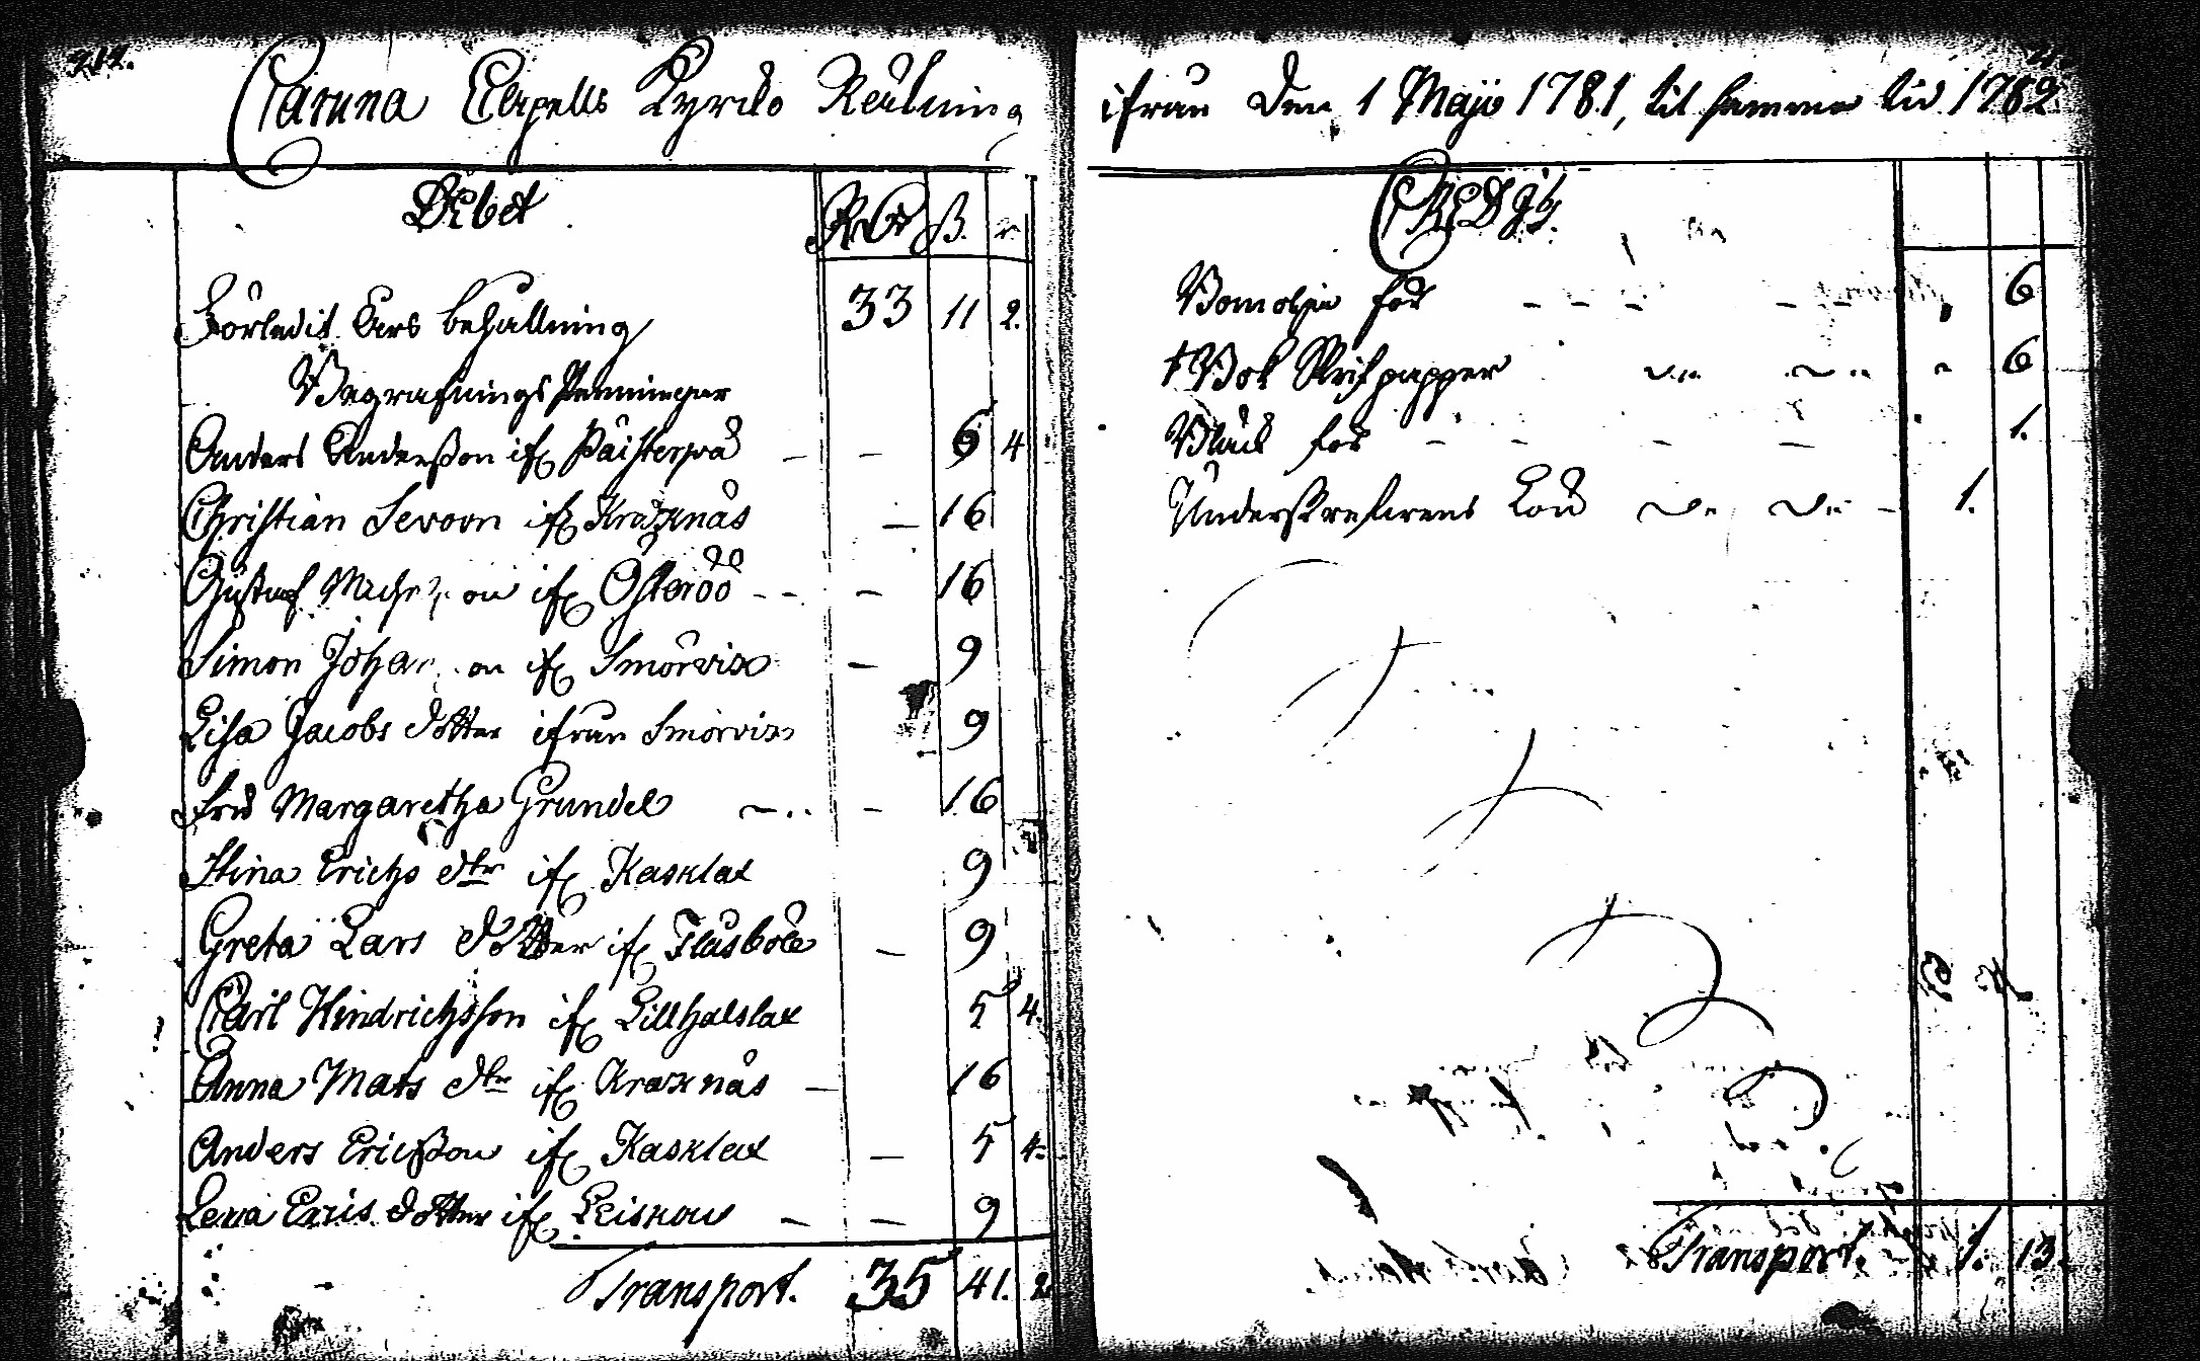 Caruna Capells Kyrcko Räkning ifrån den 1 Maji 1781, til samma tid 1782
Debet
Rdr ß. r.
Förledit Års behållning 33 11 2.
Begrafnings Penningar
Anders Anderßon if Päisterpä - - 6 4
Christian Sevoon if Kråknäs - 16
Gustaf Miche on if Österöö - - - 16
Simon Joha on if Smörvik - 9
Lisa Jacobs dotter ifrån Smörvik 9
Fru Margaretha Grundel - 16
Stina Erichs dtr if Kasklax 9
Greta Lars dotter if Flåsböle - 9
Carl Hindrichsson if Lillhalslax 5 4.
Anna Mats dtr if Kraknäs - 16
Anders Ericßon if Kasklax - 5 4.
Lena Erics dotter if - - 9
Transport. 35 41. 2
Credit.
Bomolja för - - - - - " 6
1 Bok Skrifpapper 6
för - - - - 1.
Underskrefvarens Lön - 1.
Transport. 1. 13.